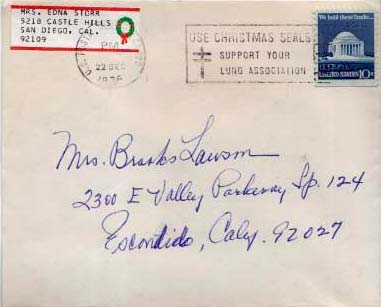 MRS. EDNA STORR
5218 CASTLE HILLS
SAN DIEGO, CAL.
92109
U.S. POSTAL
PM
22 DEC
1976
USE CHRISTMAS SEALS
SUPPORT YOUR
LUNG ASSOCIATION
We hold these Truths...
UNITED STATES 10c
Mrs. Brooks Lawson
2300 E Valley Parkway Sp. 124
Escondido, Caly. 92027